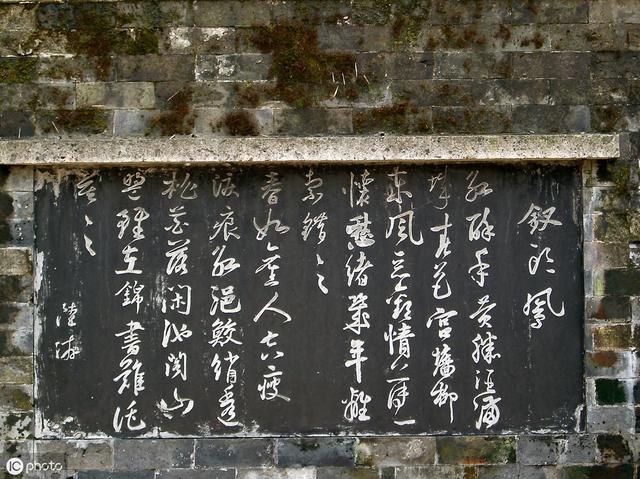 釵頭鳳
紅酥手黃縢酒滿
城春色宮牆柳
東風惡歡情薄一
懷愁緒幾年離
索錯〻〻
春如舊人空瘦
淚痕紅浥鮫綃透
桃花落閑池閣山
盟雖在錦書難托
莫〻〻
陸游
photo